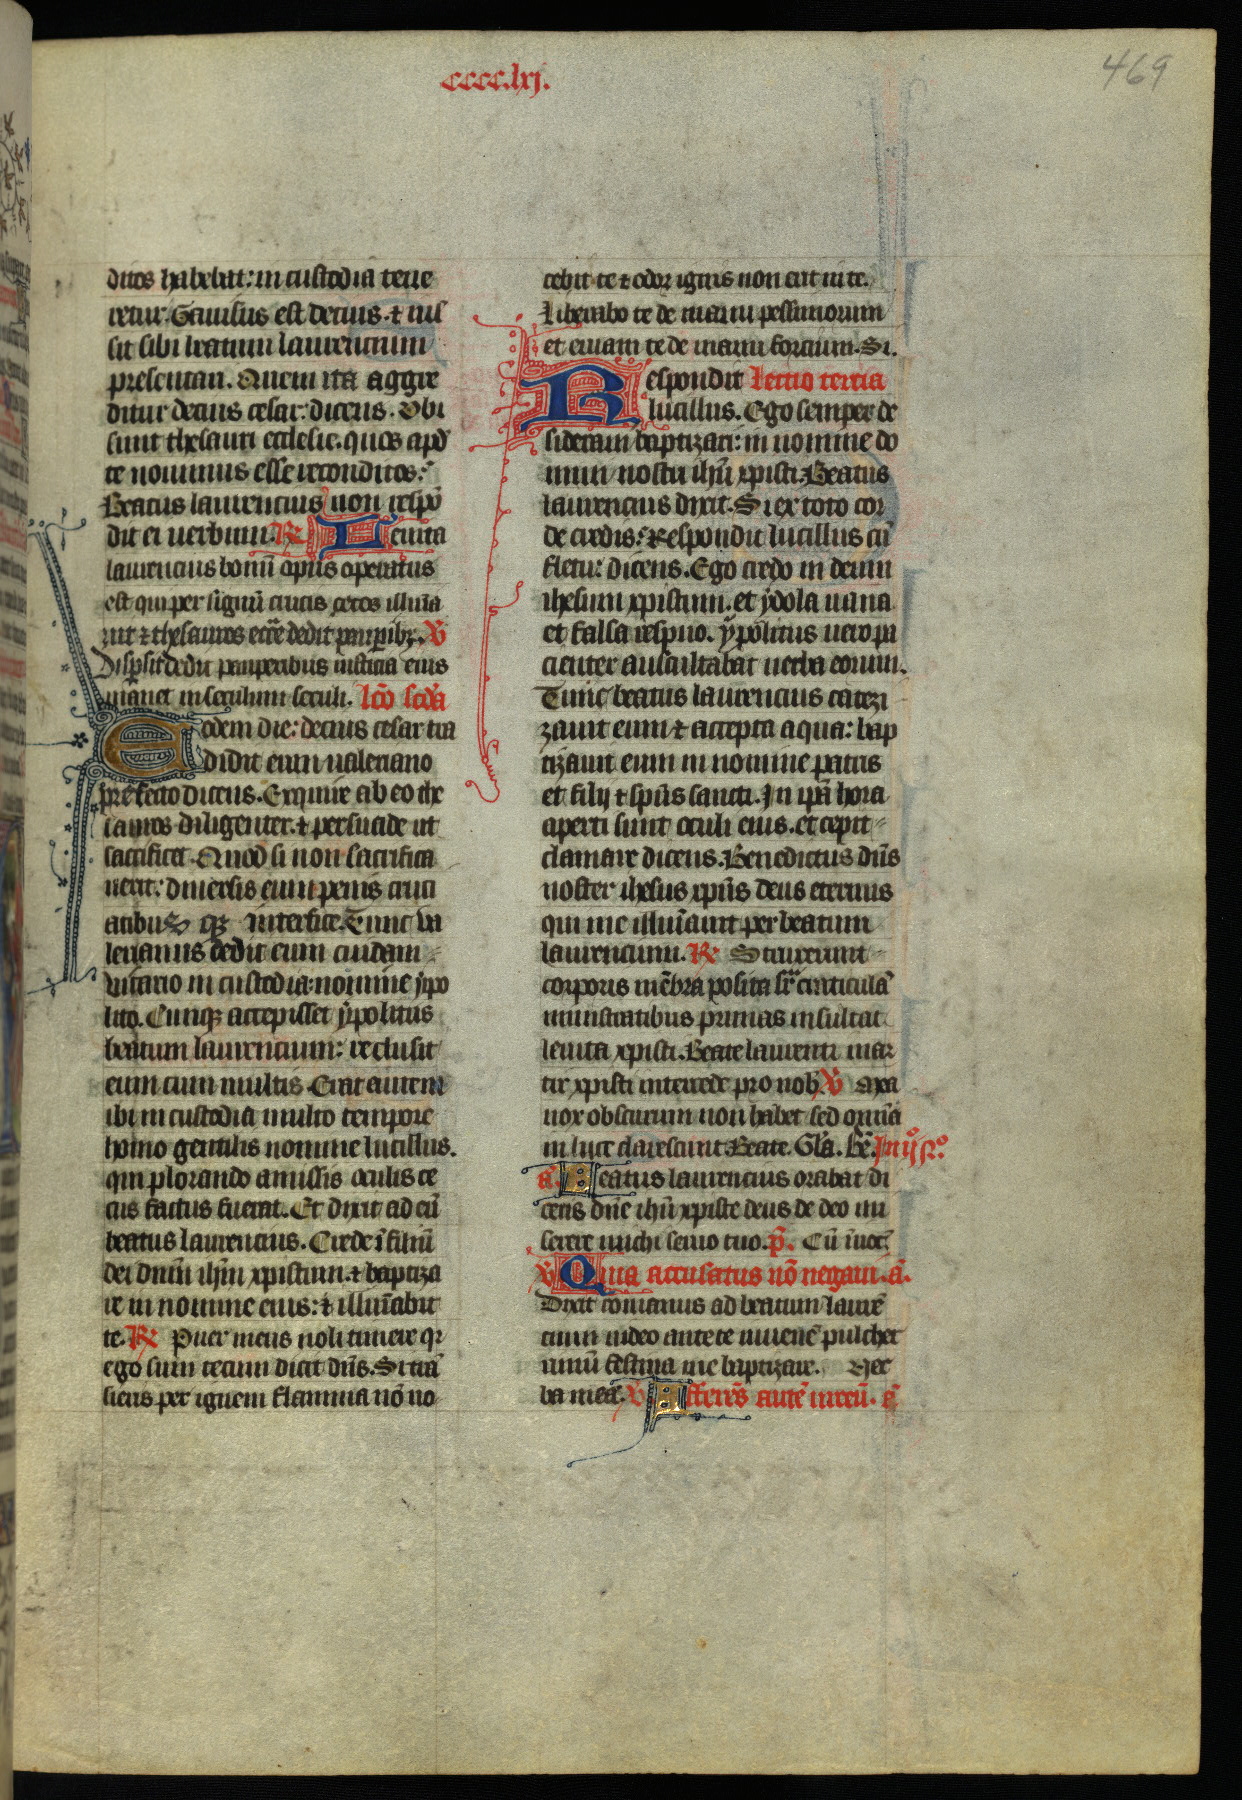 cccc.lxj.
469
ditos habebat: in custodia tene
retur. Gavisus est decius. ⁊ ius
sit sibi beatum laurencium
presentari. Quem ita aggre
ditur decius cesar: dicens. Vbi
sunt thesauri ecclesie. quos apd̄
te novimus esse reconditos:
Beatus laurencius non respō
dit ei verbum. R̸ Levita
laurencius bonū opus operatus
est qui per signū crucis cecos illuīa
vit ⁊ thesauros ecc̄e dedit pauꝑibꝫ. V̸
Dispsit dedit pauperibus iusticia eius
manet in seculum seculi. lc̄o scd̄a
Eodem die: decius cesar tra
didit eum valeriano
prefecto dicens. Exquire ab eo the
sauros diligenter. ⁊ persuade ut
sacrificet. Quod si non sacrifica
verit: diversis eum penis cruci
atibus qꝫ interfice. Tunc va
lerianus dedit eum cuidam
vicario in custodia: nomine ypo
lito. Cunqꝫ accepisset ypolitus
beatum laurencium: reclusit
eum cum multis. Erat autem
ibi in custodia multo tempore
homo gentilis nomine lucillus.
qui plorando amissis oculis ce
cus factus fuerat. Et dixit ad eū
beatus laurencius. Crede ī filiū
dei dn̄m ih̄m xpistum. ⁊ baptiza
re in nomine eius: ⁊ illuīabit
te. R̸ Puer meus noli timere qr
ego sum tecum dicit dn̄s. Si trā
siens per ignem flamma nō no
cebit te ⁊ odor ignis non erit in te.
Liberabo te de manu pessimorum
et eruam te de manu forcium. Si.
Respondit Lectio tercia
lucillus. Ego semper de
sideram baptizari: in nomine do
mini nostri ihū xpisti. Beatus
laurencius dixit. Si ex toto cor
de credis: Respondit lucillus cū
fletu: dicens. Ego credo in deum
ihesum xpistum. et ydola vana
et falsa respuo. ypolitus vero pa
cienter auscultabat verba eorum.
Tunc beatus laurencius catezi
zavit eum ⁊ accepta aqua: bap
tizavit eum in nomine patris
et filij ⁊ sp̄us sancti. In ip̄a hora
aperti sunt oculi eius. et cepit
clamare dicens. Benedictus dn̄s
noster ihesus xp̄us deus eternus
qui me illuīavit per beatum
laurencium. R̸ Strinxerunt
corporis mēbra posita sr̄ craticulā
ministrātibus prunas insultat
levita xpisti. Beate laurenti mar
tir xpisti intercede pro nob̄ V̸ Mea
nox obscurum non habet sed omīa
in luce clarescunt. Beate. Gl̄a. Be. In ij no.
a. Beatus laurencius orabat di
cens dn̄e ihū xpiste deus de deo mi
serere michi servo tuo. p̄. Cū īvoc̄
V̸ Quia accusatus nō negavi. a.
Dixit romanus ad beatum laurē
cium video ante te iuvenē pulcher
rimū festina me baptizare. Ver
ba mea. V̸ Afferēs autē urceū. a